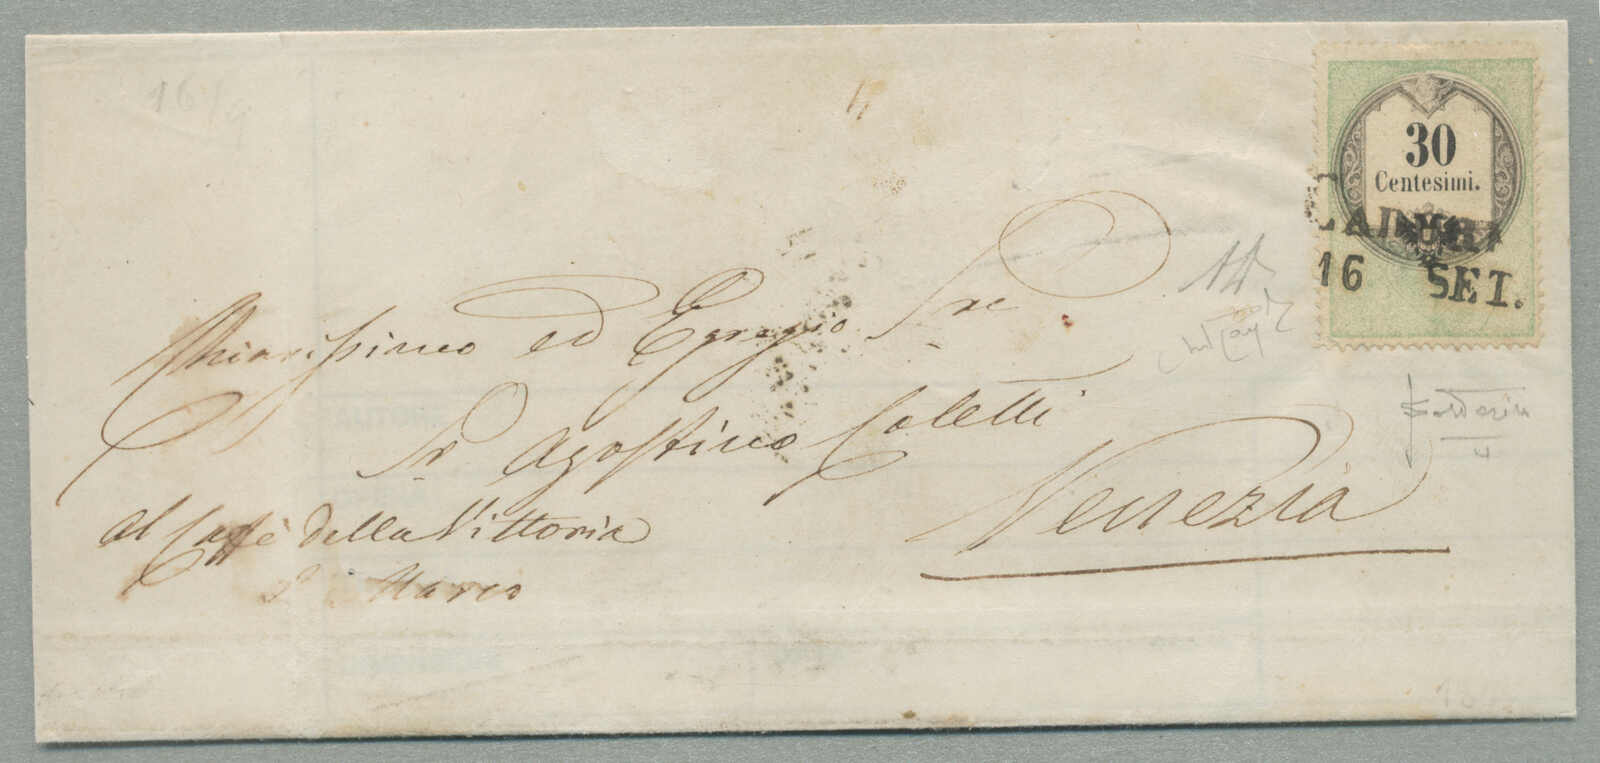 16/9
30
Centesimi.
16 SET.
Chiarissimo ed Egregio Sre
Sr Agostino Coletti
Venezia
al Caffè della Vittoria
S. Marco